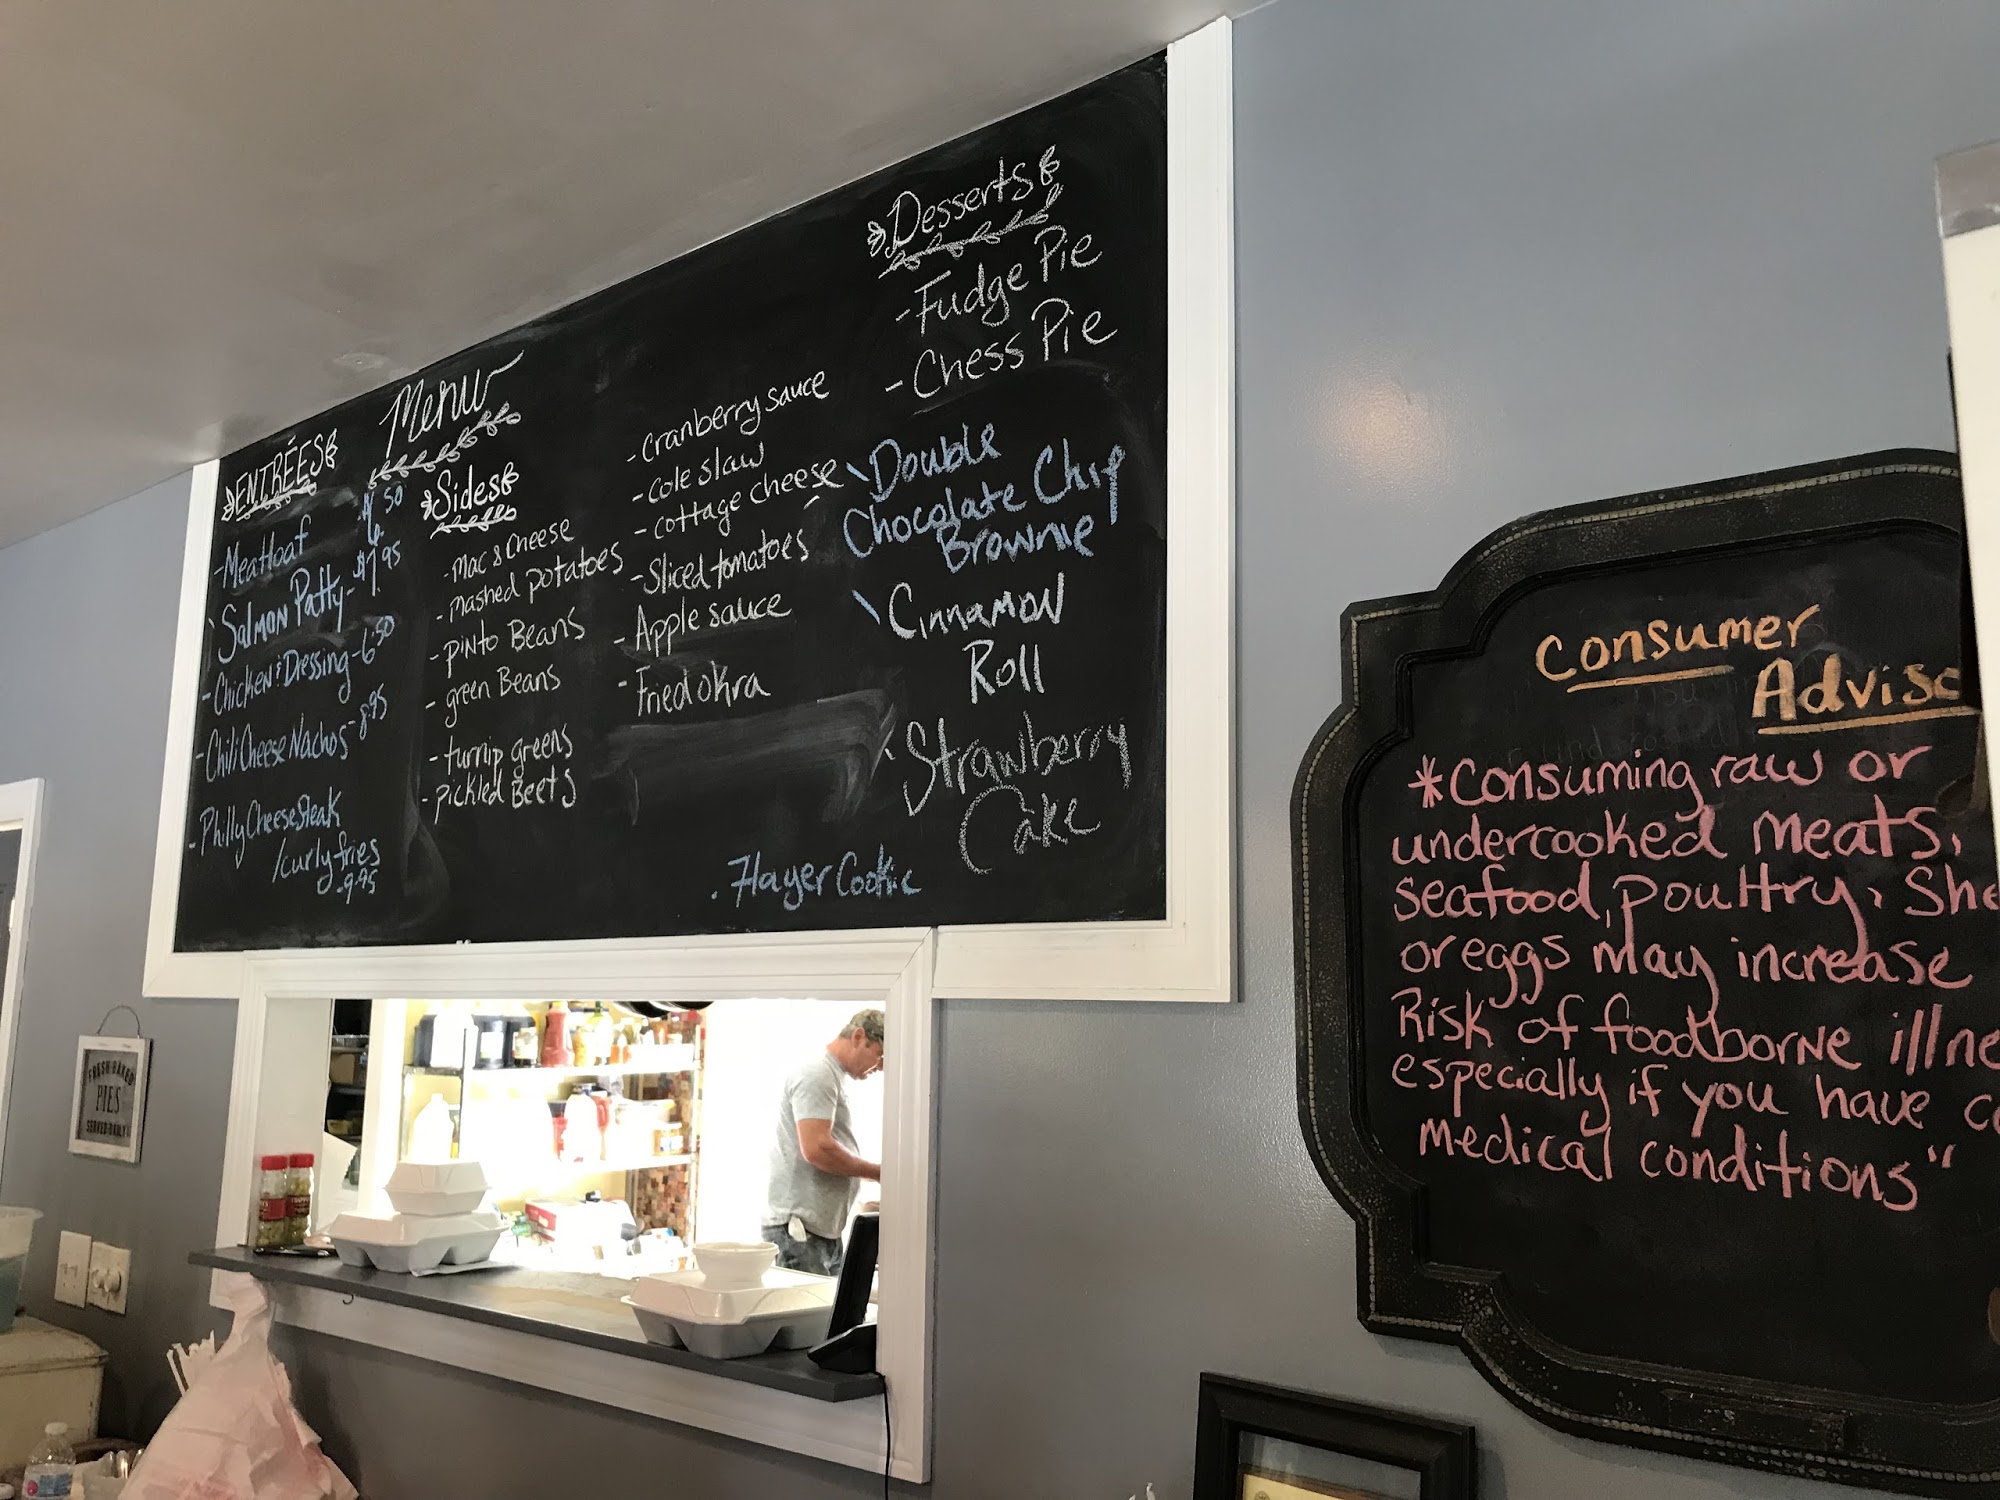 Menu
ENTRÉES
-Meatloaf $6.50
\Salmon Patty- $7.95
-Chicken & Dressing-6.50
-Chili Cheese Nachos-8.95
-Philly Cheese Steak
/curly fries
-9.95
Sides
-mac & cheese
-mashed potatoes
-pinto Beans
-green Beans
-turnip greens
-pickled Beets
-cranberry sauce
-cole slaw
-cottage cheese
-Sliced tomatoes
-Apple sauce
-Fried okra
Desserts
-Fudge Pie
-Chess Pie
\Double
Chocolate Chip
Brownie
\Cinnamon
Roll
Strawberry
Cake
.7layer Cookie
Consumer
Adviso
*Consuming raw or
undercooked meats,
seafood, poultry, She
or eggs may increase
Risk of foodborne illne
especially if you have ce
medical conditions"
FRESH BAKED
PIES
SERVED DAILY